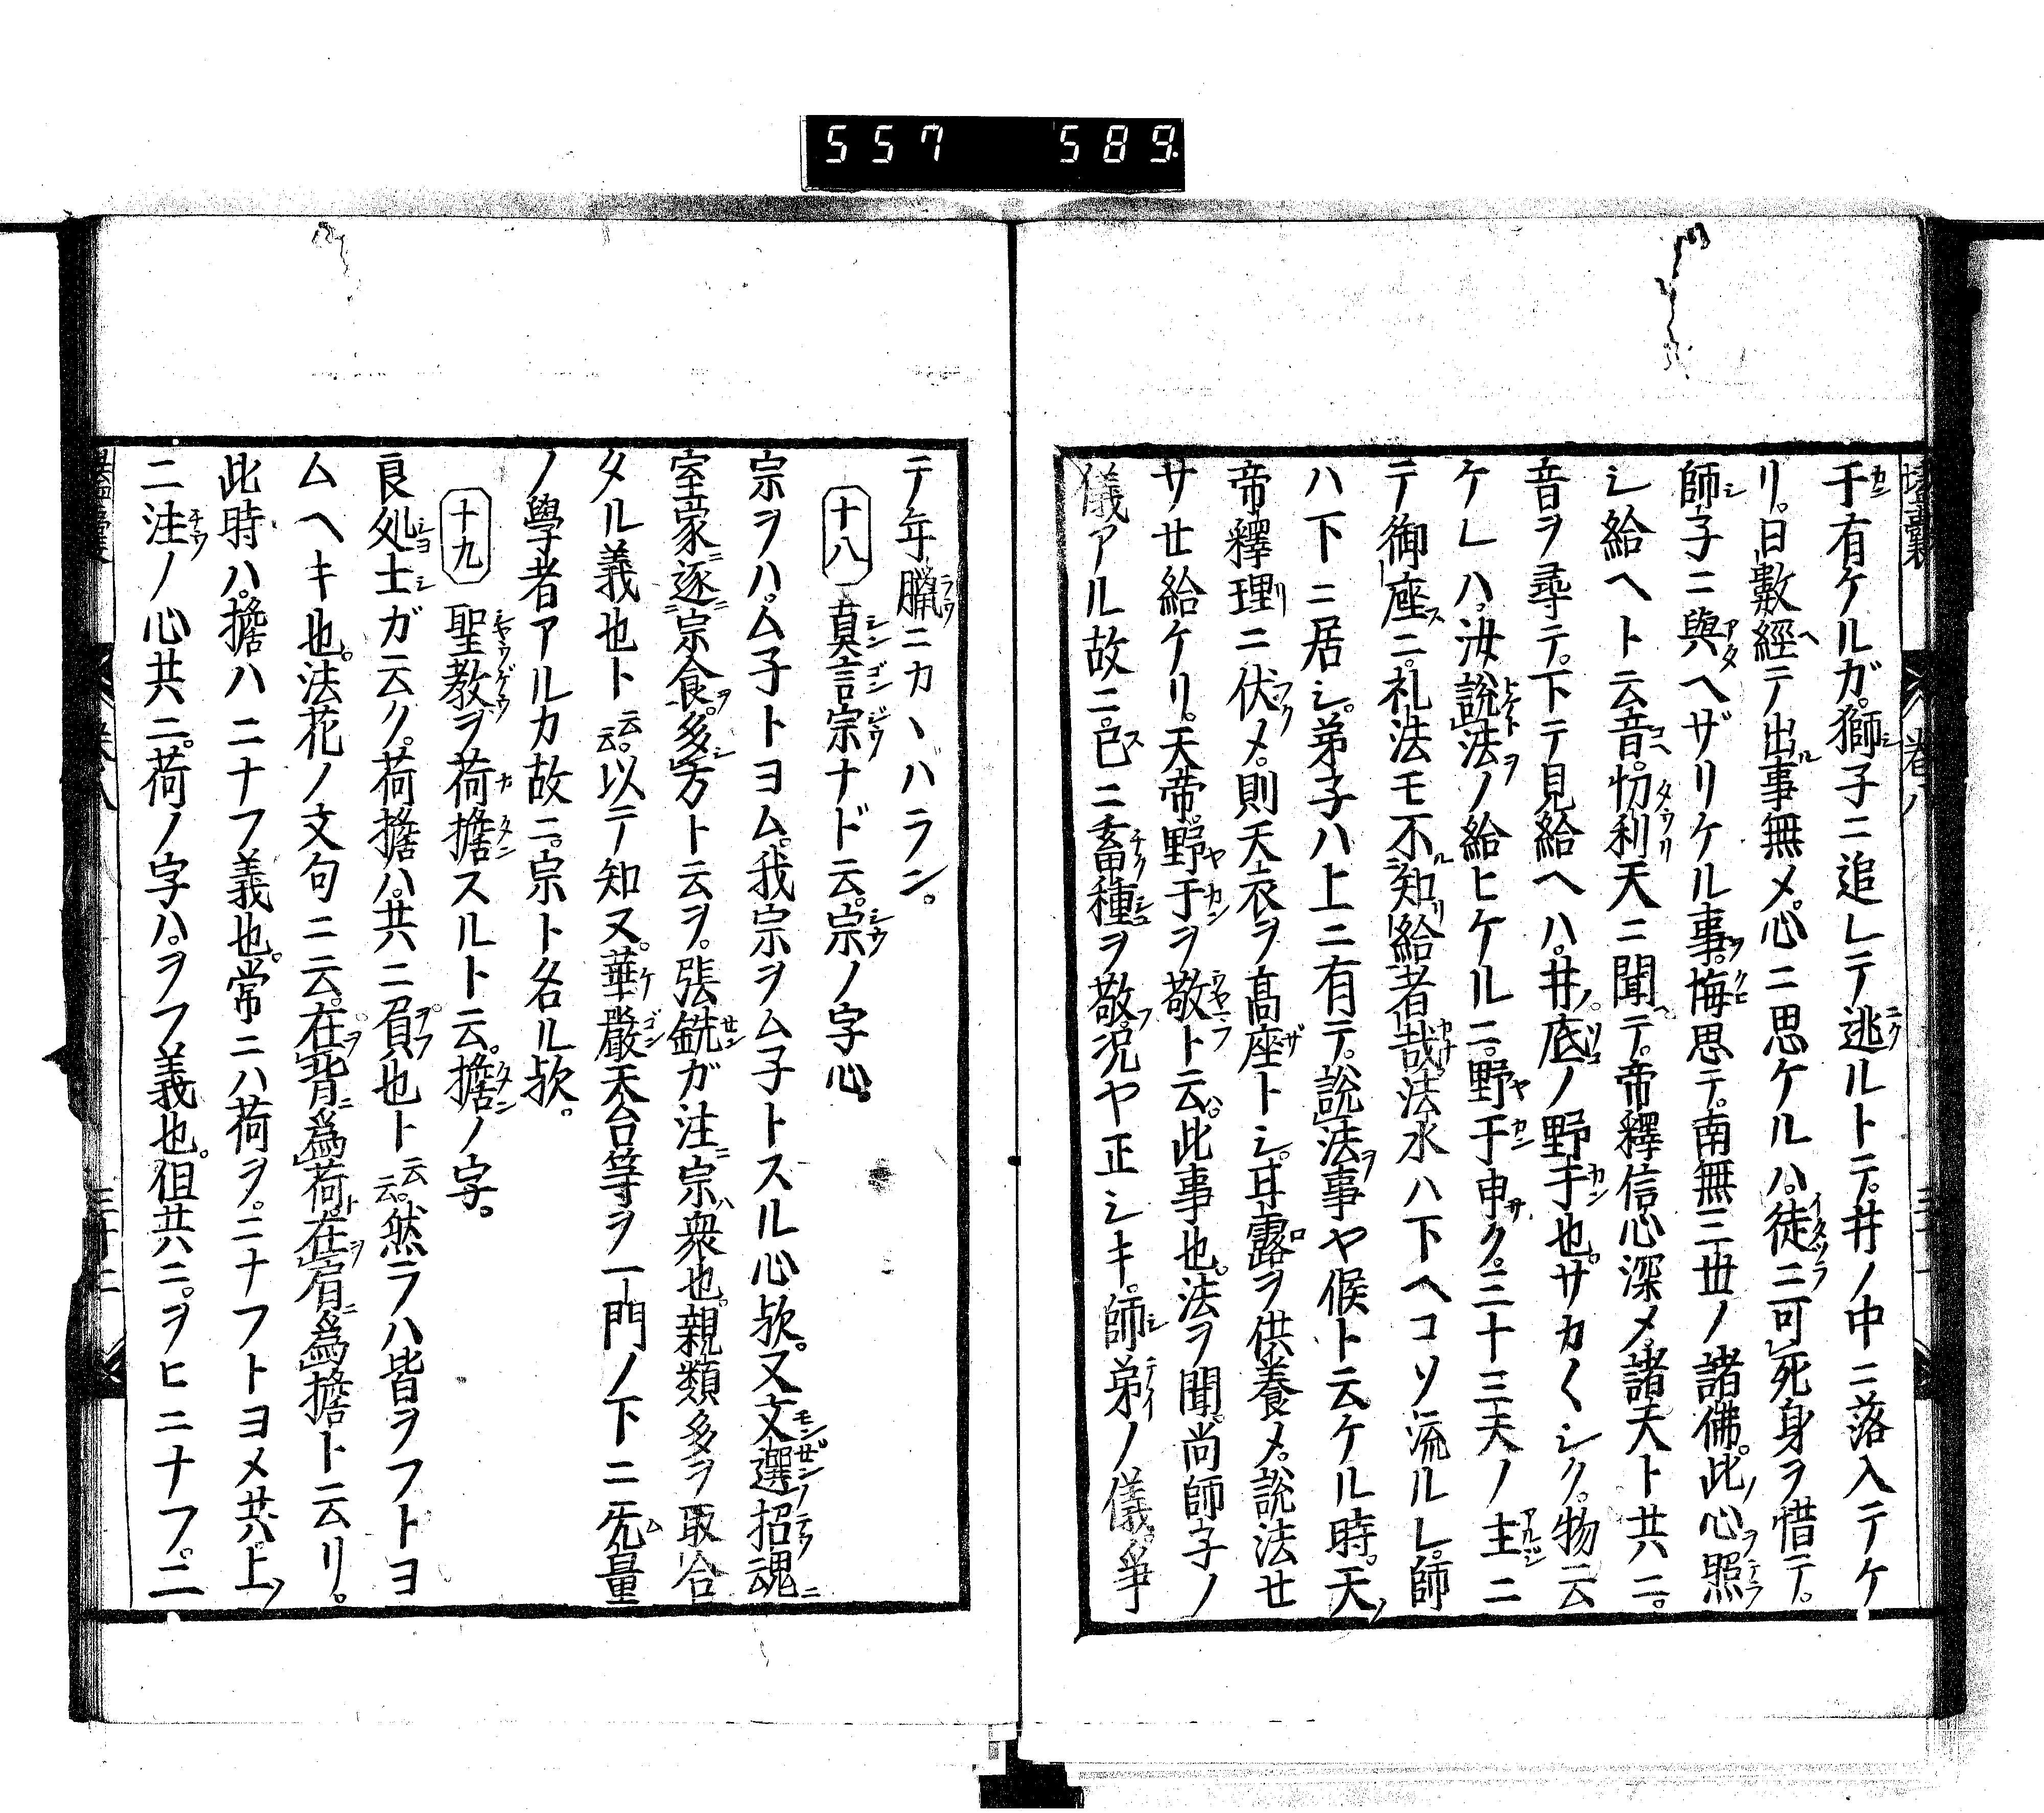 557 589.
干有ケルガ。獅子ニ追レテ逃ルトテ。井ノ中ニ落入テケ
リ。日數經テ出事無メ。心ニ思ケルハ。徒ニ可死身ヲ惜テ。
師子ニ與ヘザリケル事。悔思テ。南無三世ノ諸佛。此心照
シ給ヘト云音。忉利天ニ聞テ。帝釋信心深メ。諸天ト共ニ。
音ヲ尋テ。下テ見給ヘハ。井底ノ野干也。サカ〱シク。物云
ケレハ。汝説法ノ給ヒケルニ。野干申ク。三十三天ノ主ニ
テ御座ニ。礼法モ不知給者哉。法水ハ下ヘコソ流ルレ。師
ハ下ニ居シ。弟子ハ上ニ有テ。説法事ヤ候ト云ケル時。天
帝釋理ニ伏メ。則天衣ヲ髙座トシ。甘露ヲ供養メ。説法せ
サせ給ケリ。天帝。野干ヲ敬ト云。此事也。法ヲ聞。尚師子ノ
儀アル故ニ。已ニ畜種ヲ敬。況ヤ正シキ。師弟ノ儀。爭
テ年臈ニカヽハラン。
十八 真言宗ナド云。宗ノ字心。
宗ヲハ。ム子トヨム。我宗ヲム子トスル心歟。又文選招魂
室家逐宗食多方ト云ヲ。張銑ガ注ニ宗衆也。親類多ヲ取合
タル義也ト云云。以テ知ヌ。華嚴天台等ヲ一門ノ下ニ旡量
ノ學者アルカ故ニ。宗ト名ル歟。
十九 聖教ヲ荷擔スルト云。擔ノ字。
良処士ガ云ク。荷擔ハ。共ニ負也ト云云。然ラハ皆ヲフトヨ
ムヘキ也。法花ノ文句ニ云。在背爲荷。在肩爲擔ト云リ。
此時ハ。擔ハニナフ義也。常ニハ荷ヲ。ニナフトヨメ共。上
ニ注ノ心共ニ。荷ノ字ハ。ヲフ義也。但共ニ。ヲヒニナフ。二